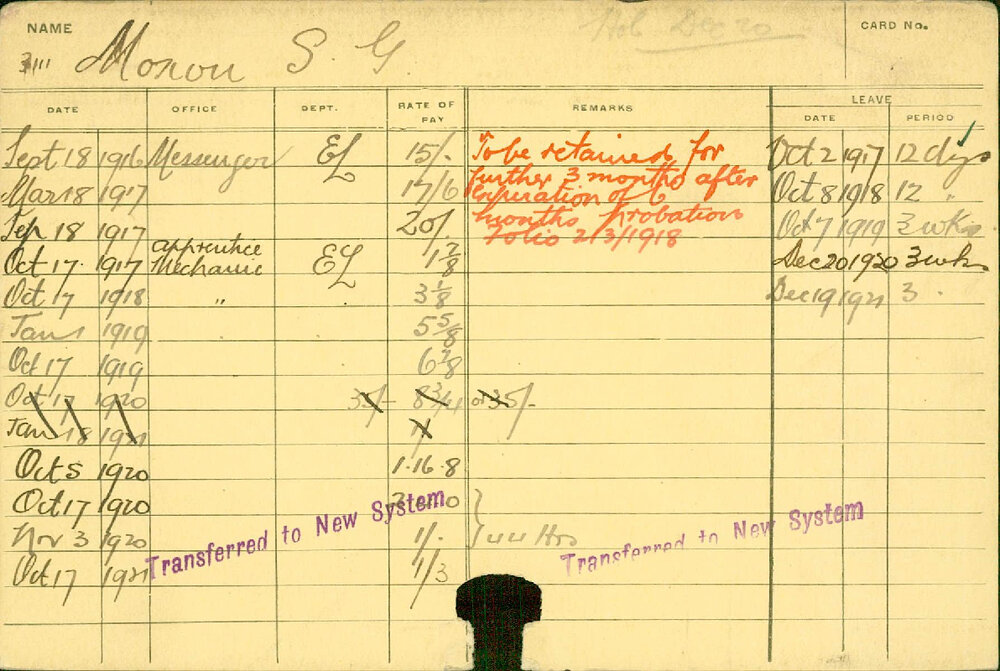 NAME
CARD No.
3111 Moxon S. G.
DATE OFFICE DEPT. RATE OF PAY REMARKS LEAVE
DATE PERIOD
Sept 18 1916 Messenger EL 15/- To be retained for Oct 2 1917 12 dys
Mar 18 1917 17/6 further 3 months after Oct 8 1918 12 "
expiration of 6
Sep 18 1917 20/- months probation Oct 7 1919 3 wks
Folio 213/1918
Oct 17 1917 apprentice Mechanic EL 1 7/8 Dec 20 1920 3 wks
Oct 17 1918 " 3 1/8 Dec 19 1921 3 "
Jan 1 1919 5 5/8
Oct 17 1919 6 7/8
Oct 17 1920 35/- 8 3/4 or 35/-
Jan 18 1921
Oct 5 1920 1-16-8
Oct 17 1920
Nov 3 1920 1/- 44 Hrs
Oct 17 1921 1/3
Transferred to New System
Transferred to New System